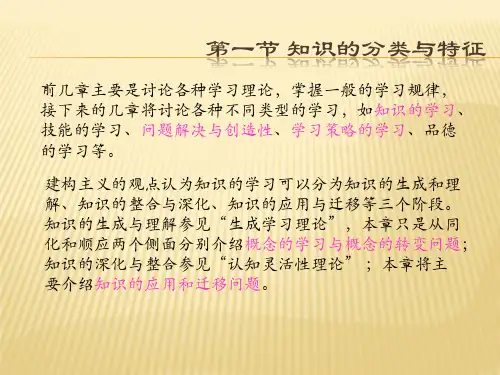 第一节 知识的分类与特征
前几章主要是讨论各种学习理论，掌握一般的学习规律，
接下来的几章将讨论各种不同类型的学习，如知识的学习、
技能的学习、问题解决与创造性、学习策略的学习、品德
的学习等。
建构主义的观点认为知识的学习可以分为知识的生成和理
解、知识的整合与深化、知识的应用与迁移等三个阶段。
知识的生成与理解参见“生成学习理论”，本章只是从同
化和顺应两个侧面分别介绍概念的学习与概念的转变问题；
知识的深化与整合参见“认知灵活性理论” ；本章将主
要介绍知识的应用和迁移问题。